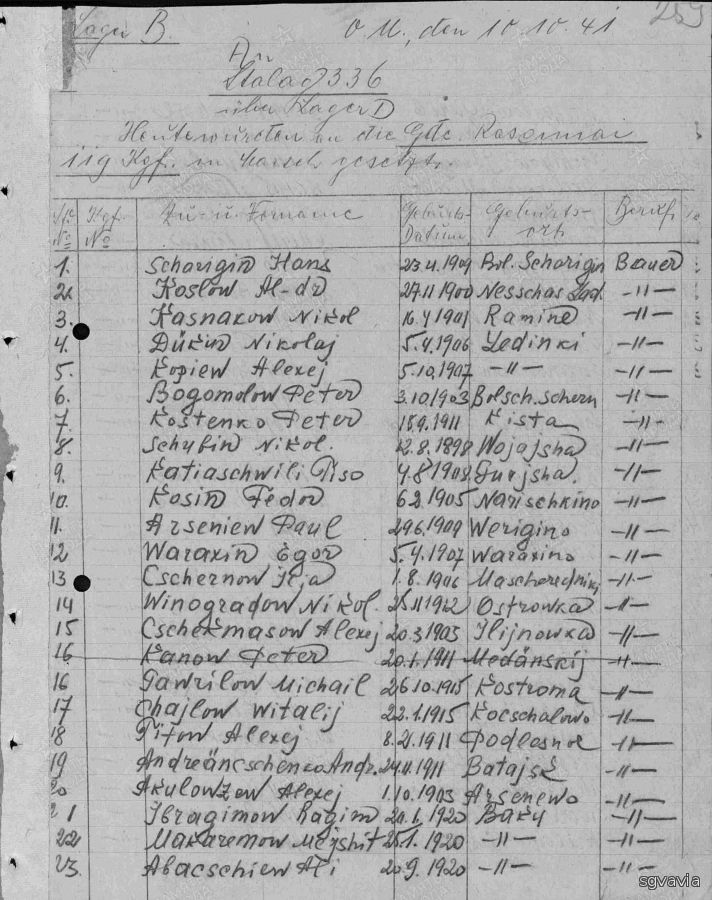 259
Lager B. O.U., den 10.10.41
An
Stalag 336
über Lager D
Heute wurden an die Gde.
119 Kgf. in Marsch gesetzt.
Kgf. Zu- u. Vorname Geburts- Geburts- Beruf
№ № Datum ort
1. Scharigin Hans 23.4.1909 Bol. Scharigin Bauer
2. Koslow Al-dr 27.11.1900 -"-
3. Kasnakow Nikol 16.4.1901 Ramine -"-
4. Dükin Nikolaj 5.4.1906 Ledinki -"-
5. Kopiew Alexej 5.10.1907 -"- -"-
6. Bogomolow Peter 3.10.1903 Bolsch. Schern -"-
7. Kostenko Peter 1911 Kista -"-
8. Schubin Nikol. 12.8.1898 Wojajsha -"-
9. Katiaschwili Piso 4.8.1908 Gurjsha. -"-
10. Kosin Fedor 6.2.1905 Narischkino -"-
11. Arseniew Paul 29.6.1909 Werigino -"-
12 Waraxin Egor 5.4.1907 Waraxino -"-
13 Cschernow Ilja 1.8.1906 -"-
14 Winogradow Nikol. 25.11.1912 Ostrowka -"-
15 Cschekmasow Alexej 20.3.1903 Iljinowka -"-
16 Kanow Peter 20.1.1911 Medänskij -"-
16 Gawrilow Michail 26.10.1915 Kostroma -"-
17 Chajlow Witalij 22.1.1915 Kocschalowo -"-
18 Titow Alexej 8.2.1911 Podlosnoe -"-
19 Andreäncschenko Andr. 24.11.1911 Batajsk -"-
20 Akulowzew Alexej 1.10.1903 Arsenewo -"-
21 Ibragimow Ragim 20.1.1920 Baku -"-
22 Makaremow Mejshit 25.1.1920 -"- -"-
23. Abacschiew Ali 20.9.1920 -"- -"-
sgvavia